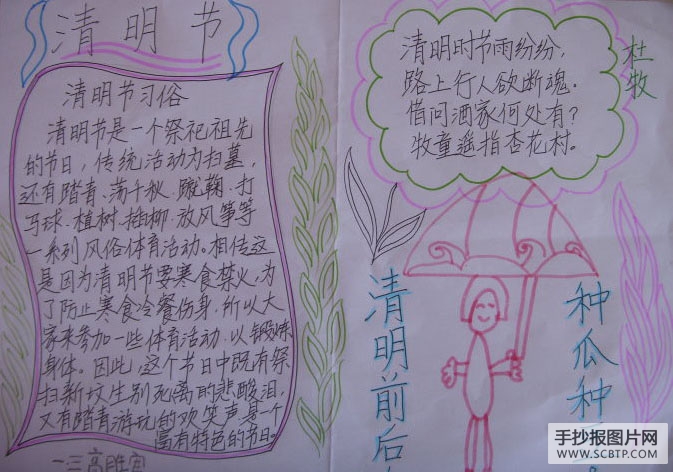 清明节
清明节习俗
清明节是一个祭祀祖先
的节日,传统活动为扫墓,
还有踏青、荡千秋、蹴鞠、打
马球、植树、插柳、放风筝等
一系列风俗体育活动。相传这
是因为清明节要寒食禁火,为
了防止寒食冷餐伤身,所以大
家来参加一些体育活动,以锻炼
身体。因此,这个节日中既有祭
扫新坟生别死离的悲酸泪,
又有踏青游玩的欢笑声,是一个
富有特色的节日。
一三高胜寒
清明时节雨纷纷,
路上行人欲断魂。
借问酒家何处有?
牧童遥指杏花村。
杜牧
清明前后
种瓜种
手抄报图片网
WWW.SCBTP.COM